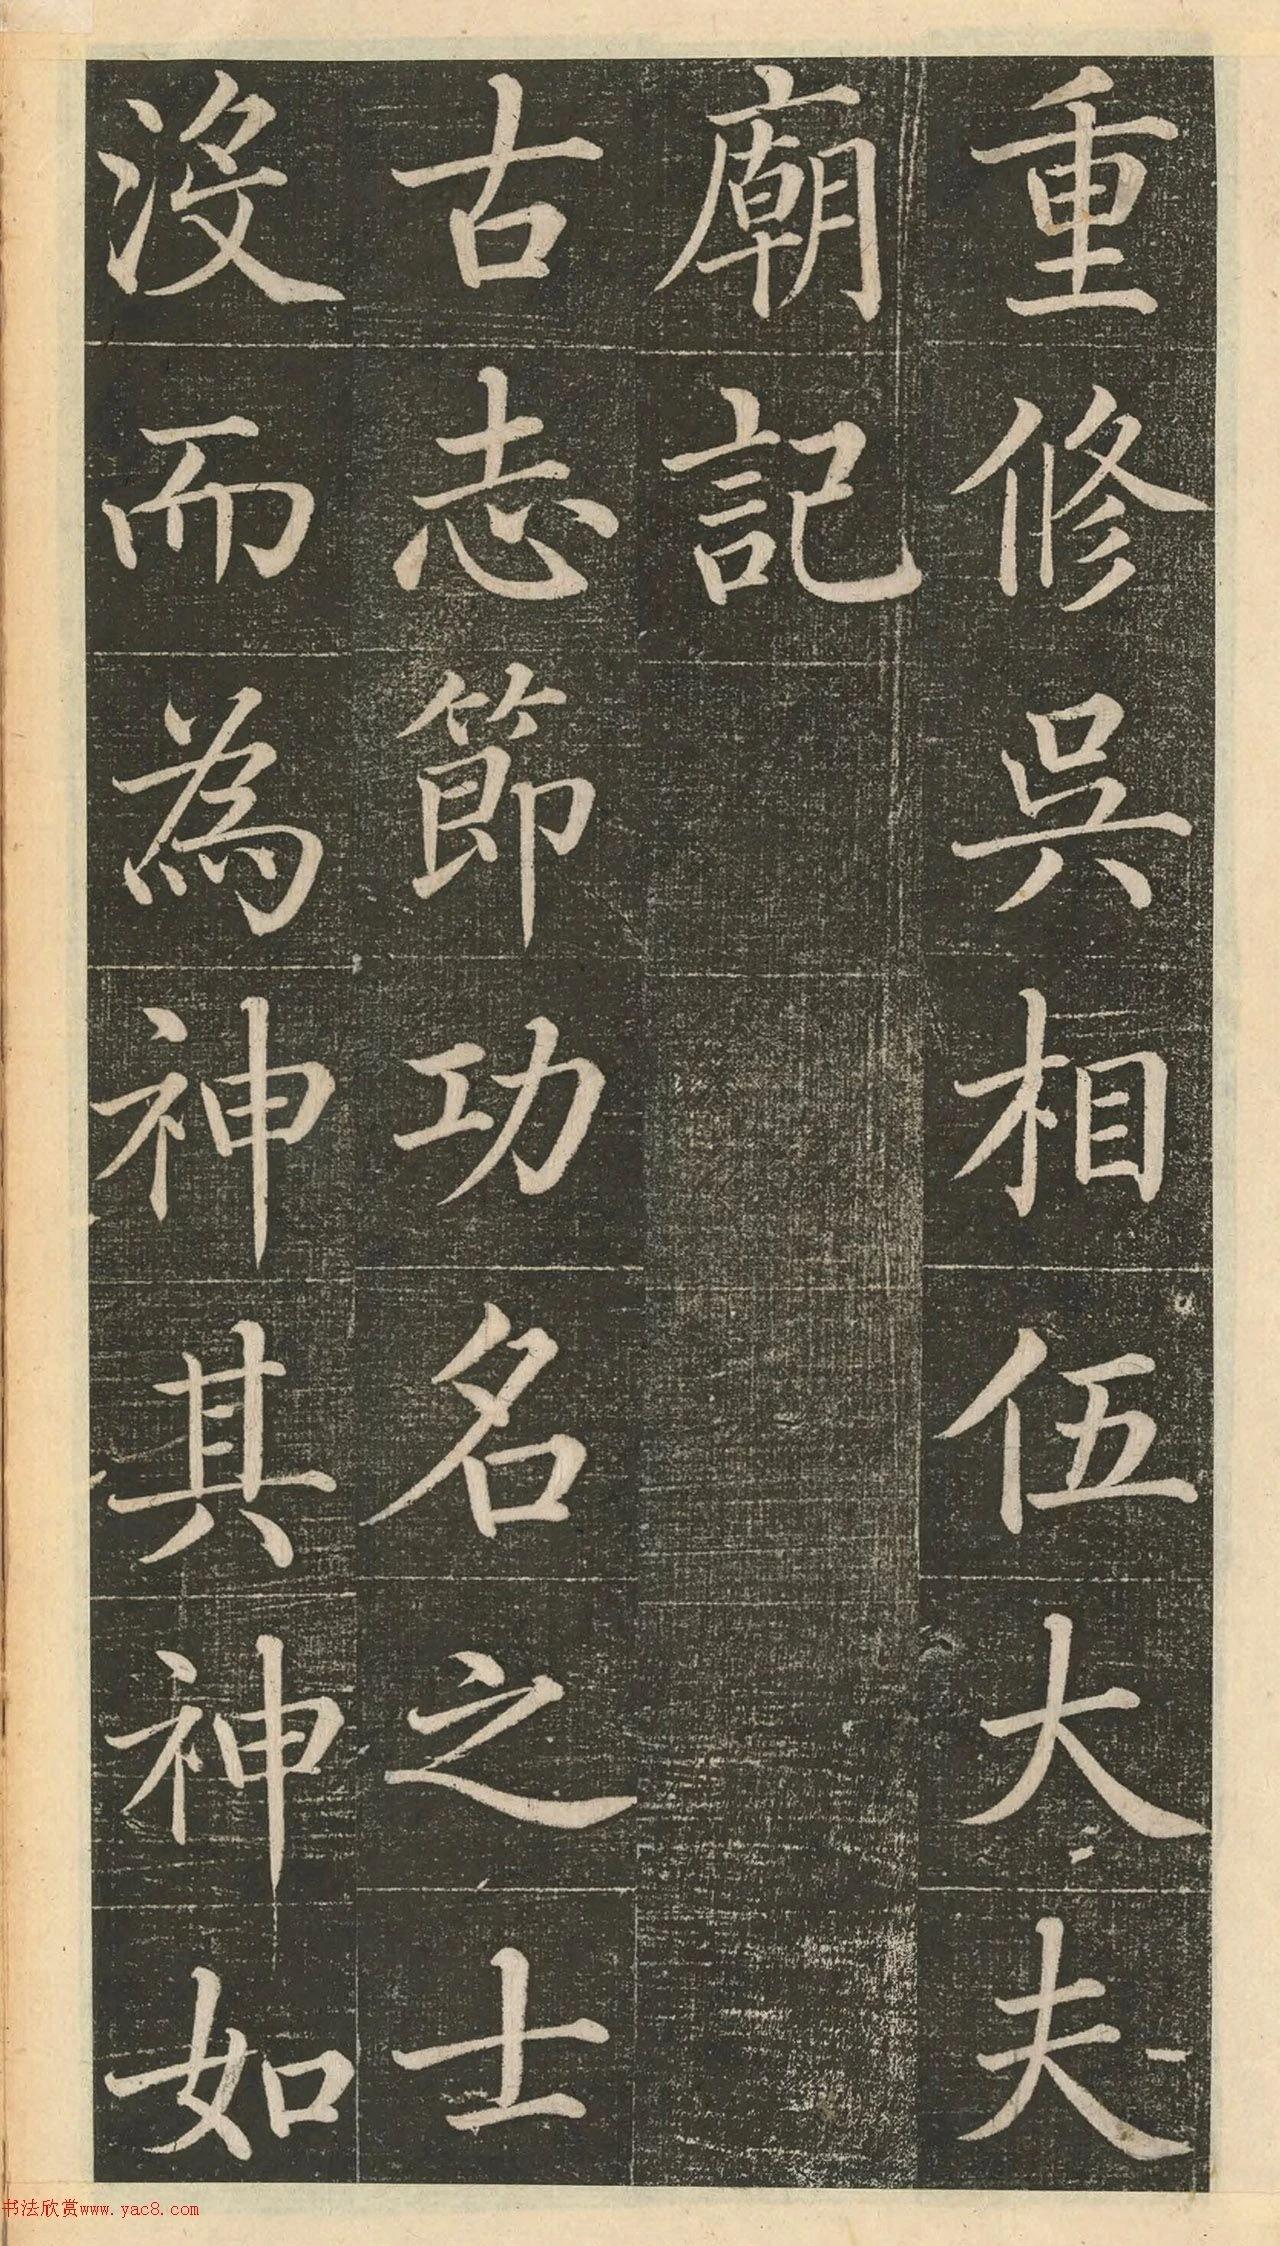 重修吳相伍大夫
廟記
古志節功名之士
沒而為神其神如
书法欣赏www.yac8.com